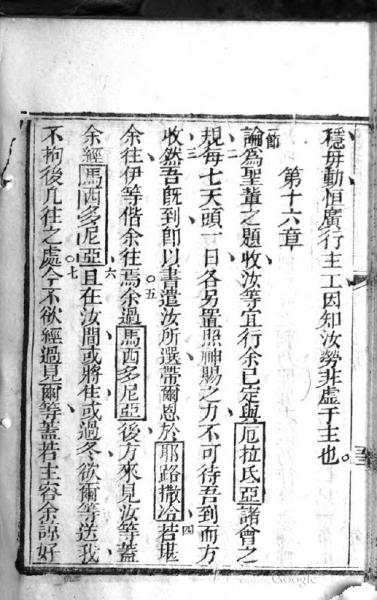 穩毋動恒廣行主工因知汝勞非虛于主也
第十六章
一節
論爲聖輩之題收汝等宜行余已定與厄拉氐亞諸會之
二
規每七天頭一日各另置照神賜之力不可待吾到而方
三
收然吾既到卽以書遣汝所選帶爾恩於耶路撒冷若堪
四
余往伊等偕余往焉余過馬西多尼亞後方來見汝等蓋
五
余經馬西多尼亞且在汝間或將住或過冬欲爾等送我
六
不拘後凡往之處今不欲經過見爾等蓋若主容余諒好
七
Google